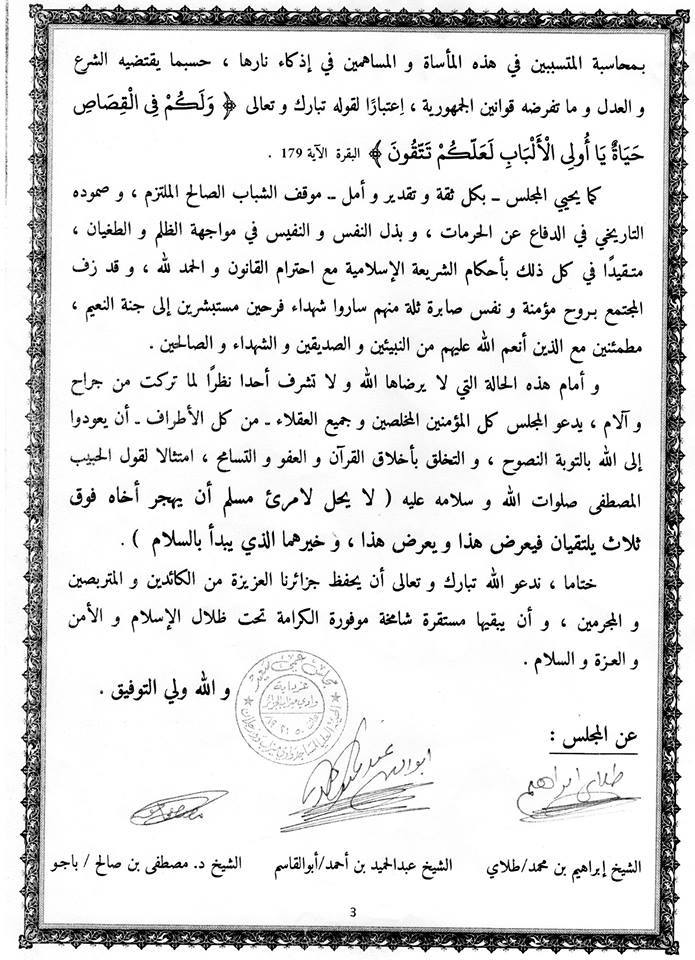 بمحاسبة المتسببين في هذه المأساة و المساهمين في إذكاء نارها ، حسبما يقتضيه الشرع
و العدل و ما تفرضه قوانين الجمهورية ، اِعتبارًا لقوله تبارك و تعالى ﴿ وَلَكُمْ فِي الْقِصَاصِ
حَيَاةٌ يَا أُولِي الْأَلْبَابِ لَعَلَّكُمْ تَتَّقُونَ ﴾ البقرة الآية 179 .
كما يحيي المجلس ـ بكل ثقة و تقدير و أمل ـ موقف الشباب الصالح الملتزم ، و صموده
التاريخي في الدفاع عن الحرمات ، و بذل النفس و النفيس في مواجهة الظلم و الطغيان ،
متقيدًا في كل ذلك بأحكام الشريعة الإسلامية مع احترام القانون و الحمد لله ، و قد زف
المجتمع بروح مؤمنة و نفس صابرة ثلة منهم ساروا شهداء فرحين مستبشرين إلى جنة النعيم ،
مطمئنين مع الذين أنعم الله عليهم من النبيئين و الصديقين و الشهداء و الصالحين .
و أمام هذه الحالة التي لا يرضاها الله و لا تشرف أحدا نظرًا لما تركت من جراح
و آلام ، يدعو المجلس كل المؤمنين المخلصين و جميع العقلاء ـ من كل الأطراف ـ أن يعودوا
إلى الله بالتوبة النصوح ، و التخلق بأخلاق القرآن و العفو و التسامح ، امتثالا لقول الحبيب
المصطفى صلوات الله و سلامه عليه ( لا يحل لامرئ مسلم أن يهجر أخاه فوق
ثلاث يلتقيان فيعرض هذا و يعرض هذا ، و خيرهما الذي يبدأ بالسلام ) .
ختاما ، ندعو الله تبارك و تعالى أن يحفظ جزائرنا العزيزة من الكائدين و المتربصين
و المجرمين ، و أن يبقيها مستقرة شامخة موفورة الكرامة تحت ظلال الإسلام و الأمن
و العزة و السلام .
و الله ولي التوفيق .
مجلس عمي سعيد
غرداية
عن المجلس :
طلاي ابراهيم
الشيخ إبراهيم بن محمد/طلاي الشيخ عبدالحميد بن أحمد/أبوالقاسم الشيخ د. مصطفى بن صالح / باجو
3